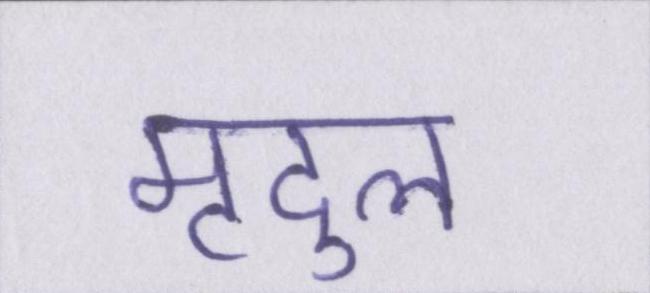 मृदुल